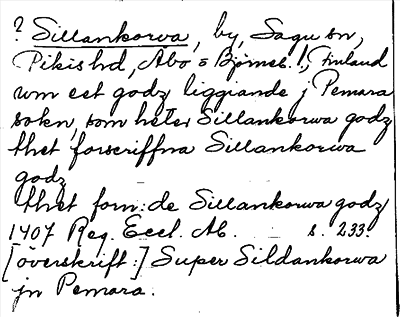 ? Sillankorva, by, Sagu sn,
Pikis hd, Åbo = Björneb. l., Finland
um eet godz liggiande j Pemara
sokn, som heter Sillankorwa godz
thet forscriffna Sillankorwa
godz
thet forn:de Sillankorwa godz
1407 Reg. Eccl. Ab. s. 233.
[överskrift:] Super Sildankorwa
jn Pemara.